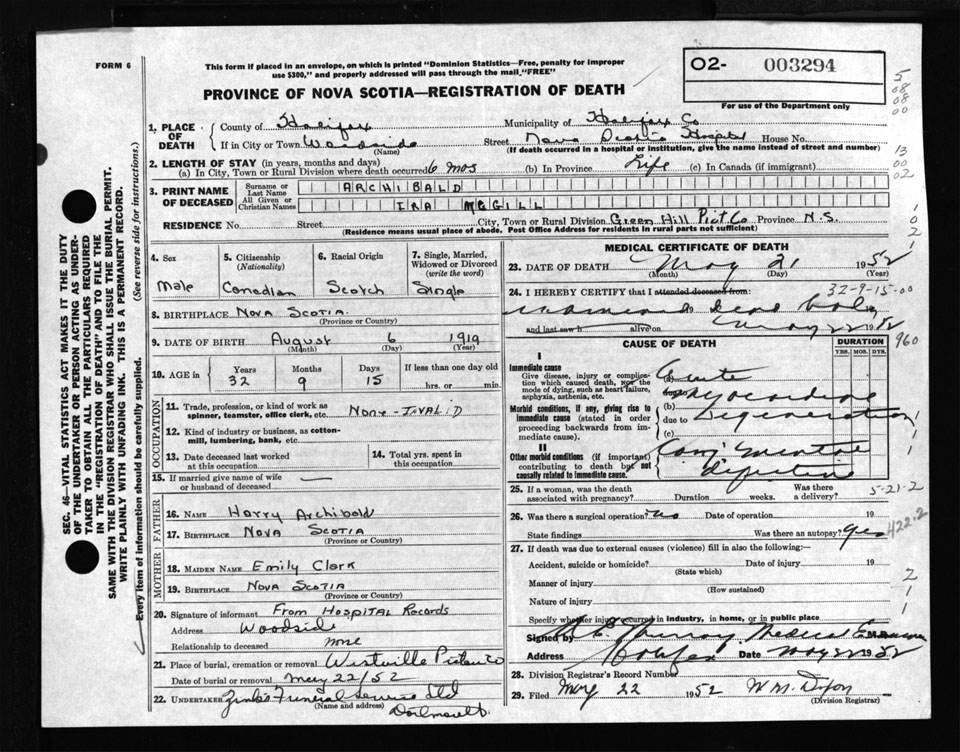 FORM 6
This form if placed in an envelope, on which is printed "Dominion Statistics—Free, penalty for improper
use $300," and properly addressed will pass through the mail "FREE"
O2- 003294
For use of the Department only
PROVINCE OF NOVA SCOTIA—REGISTRATION OF DEATH
5
08
08
00
13
00
02
1. PLACE OF DEATH
County of Halifax Municipality of Halifax Co
If in City or Town Woodside Street Nova Scotia Hospital House No.
(Name) (If death occurred in a hospital or institution, give the name instead of street and number)
2. LENGTH OF STAY (in years, months and days)
(a) In City, Town or Rural Division where death occurred 6 mos (b) In Province Life (c) In Canada (if immigrant)
3. PRINT NAME OF DECEASED
Surname or Last Name ARCHIBALD
All Given or Christian Names IRA McGILL
RESIDENCE No. Street City, Town or Rural Division Green Hill Pict Co Province N.S.
(Residence means usual place of abode. Post Office Address for residents in rural parts not sufficient)
4. Sex Male
5. Citizenship (Nationality) Canadian
6. Racial Origin Scotch
7. Single, Married, Widowed or Divorced (write the word) Single
8. BIRTHPLACE Nova Scotia.
(Province or Country)
9. DATE OF BIRTH August 6 1919
(Month) (Day) (Year)
10. AGE in Years 32 Months 9 Days 15 If less than one day old
hrs. or min.
OCCUPATION
11. Trade, profession, or kind of work as
spinner, teamster, office clerk, etc. None-Invalid
12. Kind of industry or business, as cotton-
mill, lumbering, bank, etc.
13. Date deceased last worked
at this occupation
14. Total yrs. spent in
this occupation
15. If married give name of wife
or husband of deceased —
FATHER
16. NAME Harry Archibald
17. BIRTHPLACE Nova Scotia
(Province or Country)
MOTHER
18. MAIDEN NAME Emily Clark
19. BIRTHPLACE Nova Scotia
(Province or Country)
20. Signature of informant From Hospital Records
Address Woodside
Relationship to deceased none
21. Place of burial, cremation or removal Westville Pictou Co
Date of burial or removal May 22/52
22. UNDERTAKER Zinks Funeral Service Ltd
(Name and address)
Dartmouth
MEDICAL CERTIFICATE OF DEATH
23. DATE OF DEATH May 21 1952
(Month) (Day) (Year)
32-9-15-00
24. I HEREBY CERTIFY that I attended deceased from:
examined dead body 19
and last saw h alive on May 22 1952
CAUSE OF DEATH
DURATION
YRS. MOS. DYS.
960
I
Immediate cause
Give disease, injury or complica-
tion which caused death, not the
mode of dying, such as heart failure,
asphyxia, asthenia, etc.
Acute
Myocardial
Morbid conditions, if any, giving rise to
immediate cause (stated in order
proceeding backwards from im-
mediate cause).
(b)
due to Degeneration
(c)
II
Other morbid conditions (if important)
contributing to death but not
causally related to immediate cause.
Cong Mental
defective
25. If a woman, was the death
associated with pregnancy? Duration weeks. Was there
a delivery?
5-21-2
26. Was there a surgical operation? no Date of operation 19
State findings Was there an autopsy? yes
422.2
27. If death was due to external causes (violence) fill in also the following:—
Accident, suicide or homicide? Date of injury 19
(State which)
Manner of injury
(How sustained)
Nature of injury
Specify whether injury occurred in industry, in home, or in public place
Signed by Murray Medical Examiner M.D.
Address Halifax Date May 22 1952
28. Division Registrar's Record Number
29. Filed May 22 1952 W M. Dixon
(Division Registrar)
SEC. 46—VITAL STATISTICS ACT MAKES IT THE DUTY
OF THE UNDERTAKER OR PERSON ACTING AS UNDER-
TAKER TO OBTAIN ALL THE PARTICULARS REQUIRED
IN THE "REGISTRATION OF DEATH" AND TO FILE THE
SAME WITH THE DIVISION REGISTRAR WHO SHALL ISSUE THE BURIAL PERMIT.
WRITE PLAINLY WITH UNFADING INK. THIS IS A PERMANENT RECORD.
Every item of information should be carefully supplied. (See reverse side for instructions.)